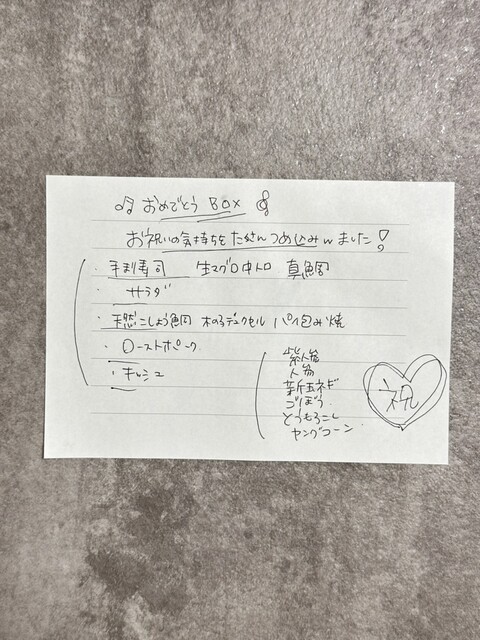 おめでとう BOX
お祝いの気持ちをたくさんつめ込みました!
・手まり寿司 生マグロ中トロ 真鯛
・サラダ
・天然こしょう鯛 木の子デュクセル パイ包み焼
・ローストポーク
・キッシュ
紫人参
人参
新玉ネギ
ごぼう
とうもろこし
ヤングコーン
祝